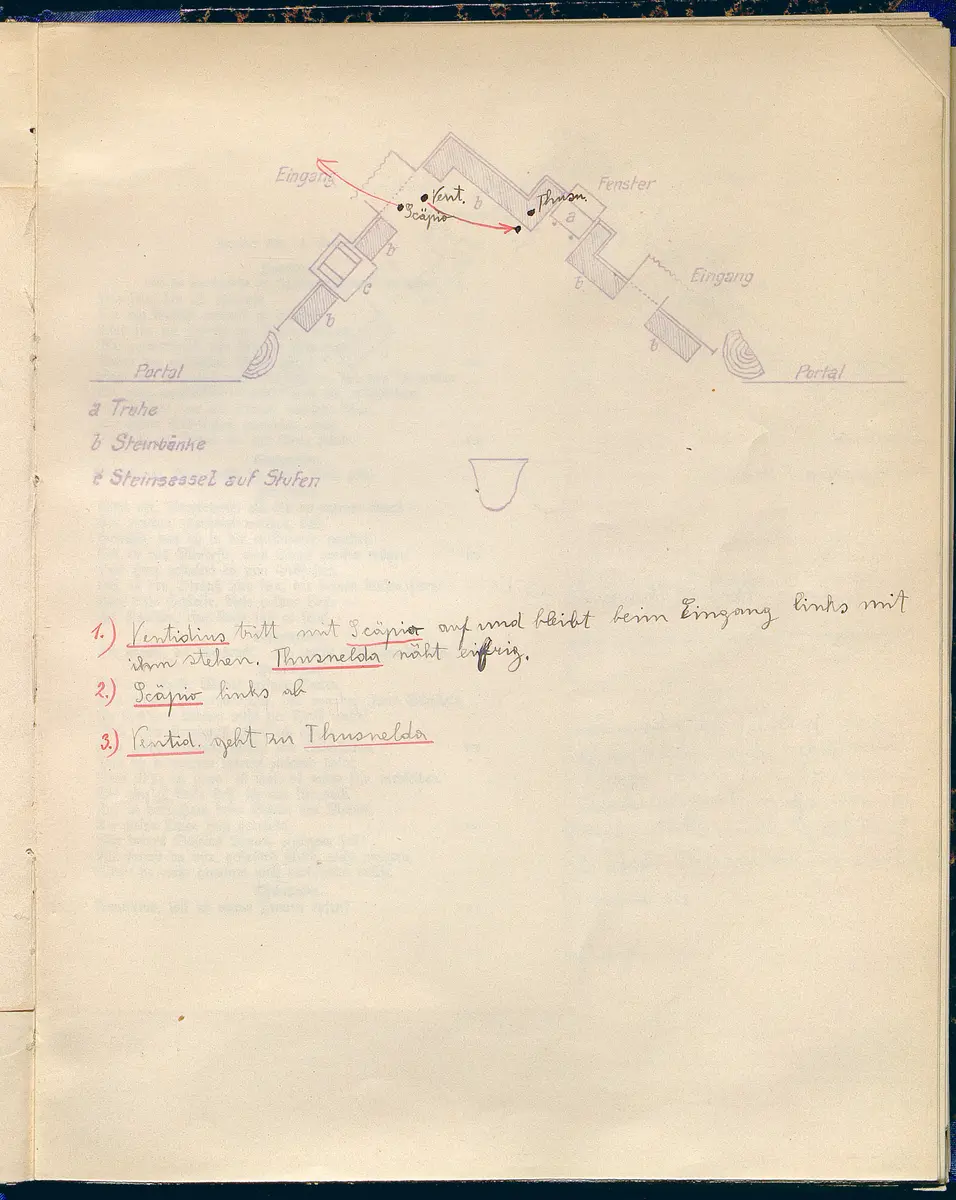 Eingang
Vent.
Scäpio
b
Thusn.
Fenster
a
b
c
b
b
Eingang
b
Portal
Portal
a Truhe
b Steinbänke
c Steinsessel auf Stufen
1.) Ventidius tritt mit Scäpio auf und bleibt beim Eingang links mit
ihm stehen. Thusnelda näht eifrig.
2.) Scäpio links ab
3.) Ventid. geht zu Thusnelda